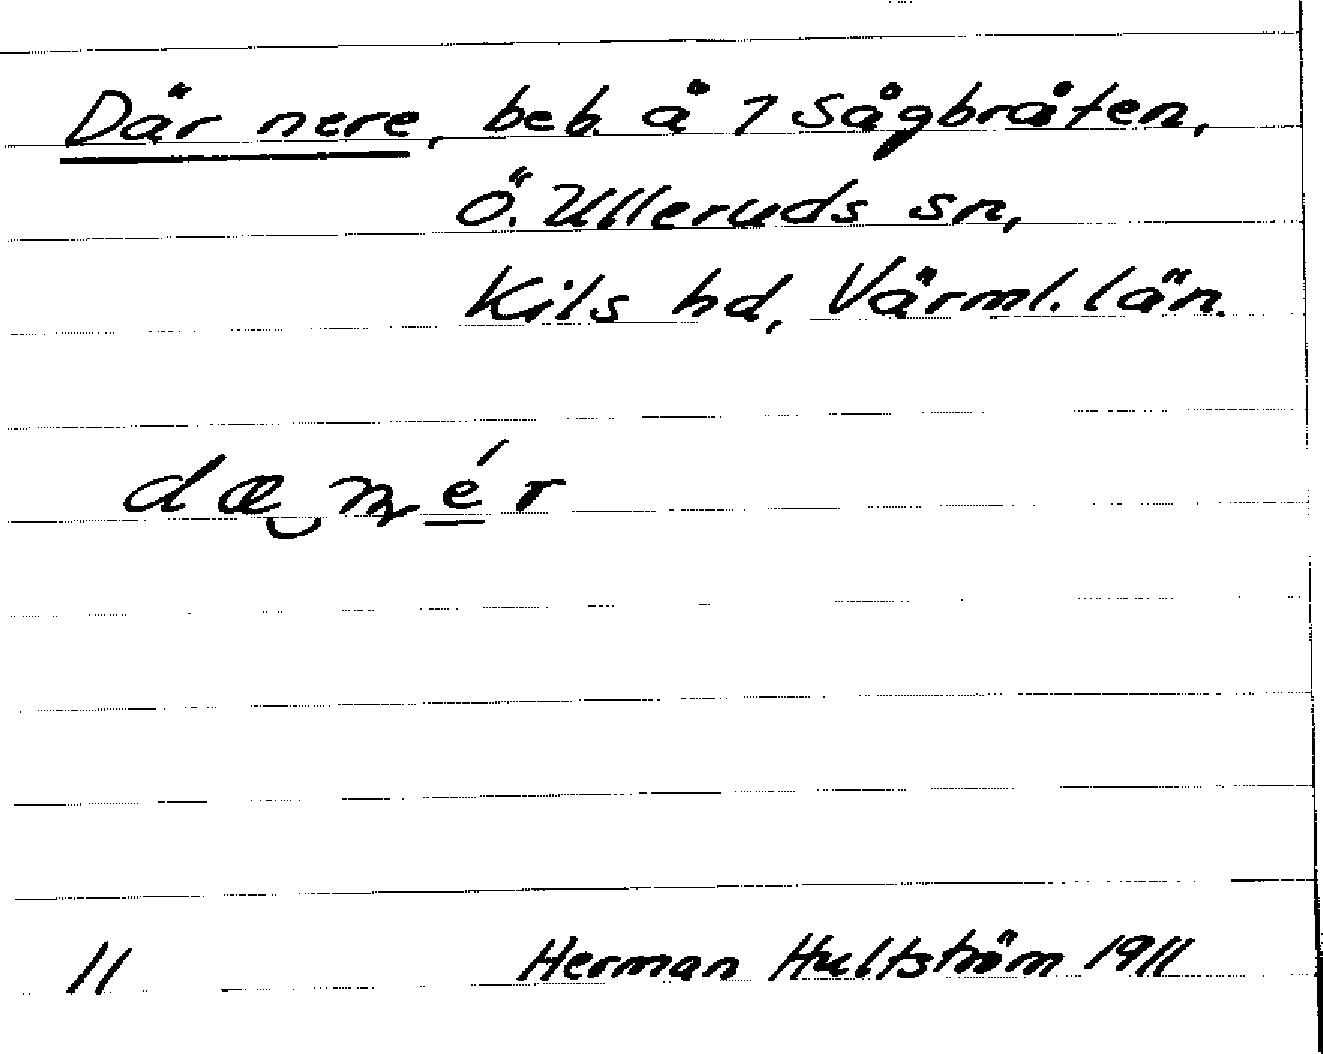 Där nere, beb. å 1 Sågbråten,
Ö. Ulleruds sn,
Kils hd, Värml. län.
dæ‿ɳé̱r
11 Herman Hultström 1911